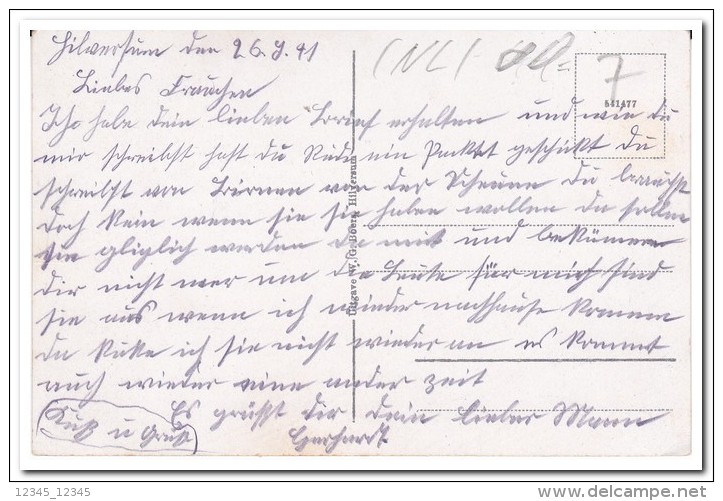 Hilversum den 26.9.41
(NL)
7
Liebes Frauchen
541477
Ich habe dein lieben Brief erhalten und wie du
mir schreibst hast du Rudi ein Packet geschickt du
schreibst von Birnen von der Scheune du brauchst
doch kein wenn sie sie haben wollen da sollen
sie glücklich werden da mit und bekümmere
dir nicht mer um die Leute für mich sind
sie aus wenn ich wieder nachhause komme
da kuke ich sie nicht wieder an es kommt
auch wieder eine ander zeit
Es grüsst dir dein lieber Mann
Gerhardt
Kuß u Gruß
Uitgave W. G. Boers, Hilversum
12345_12345
www.delcampe.net